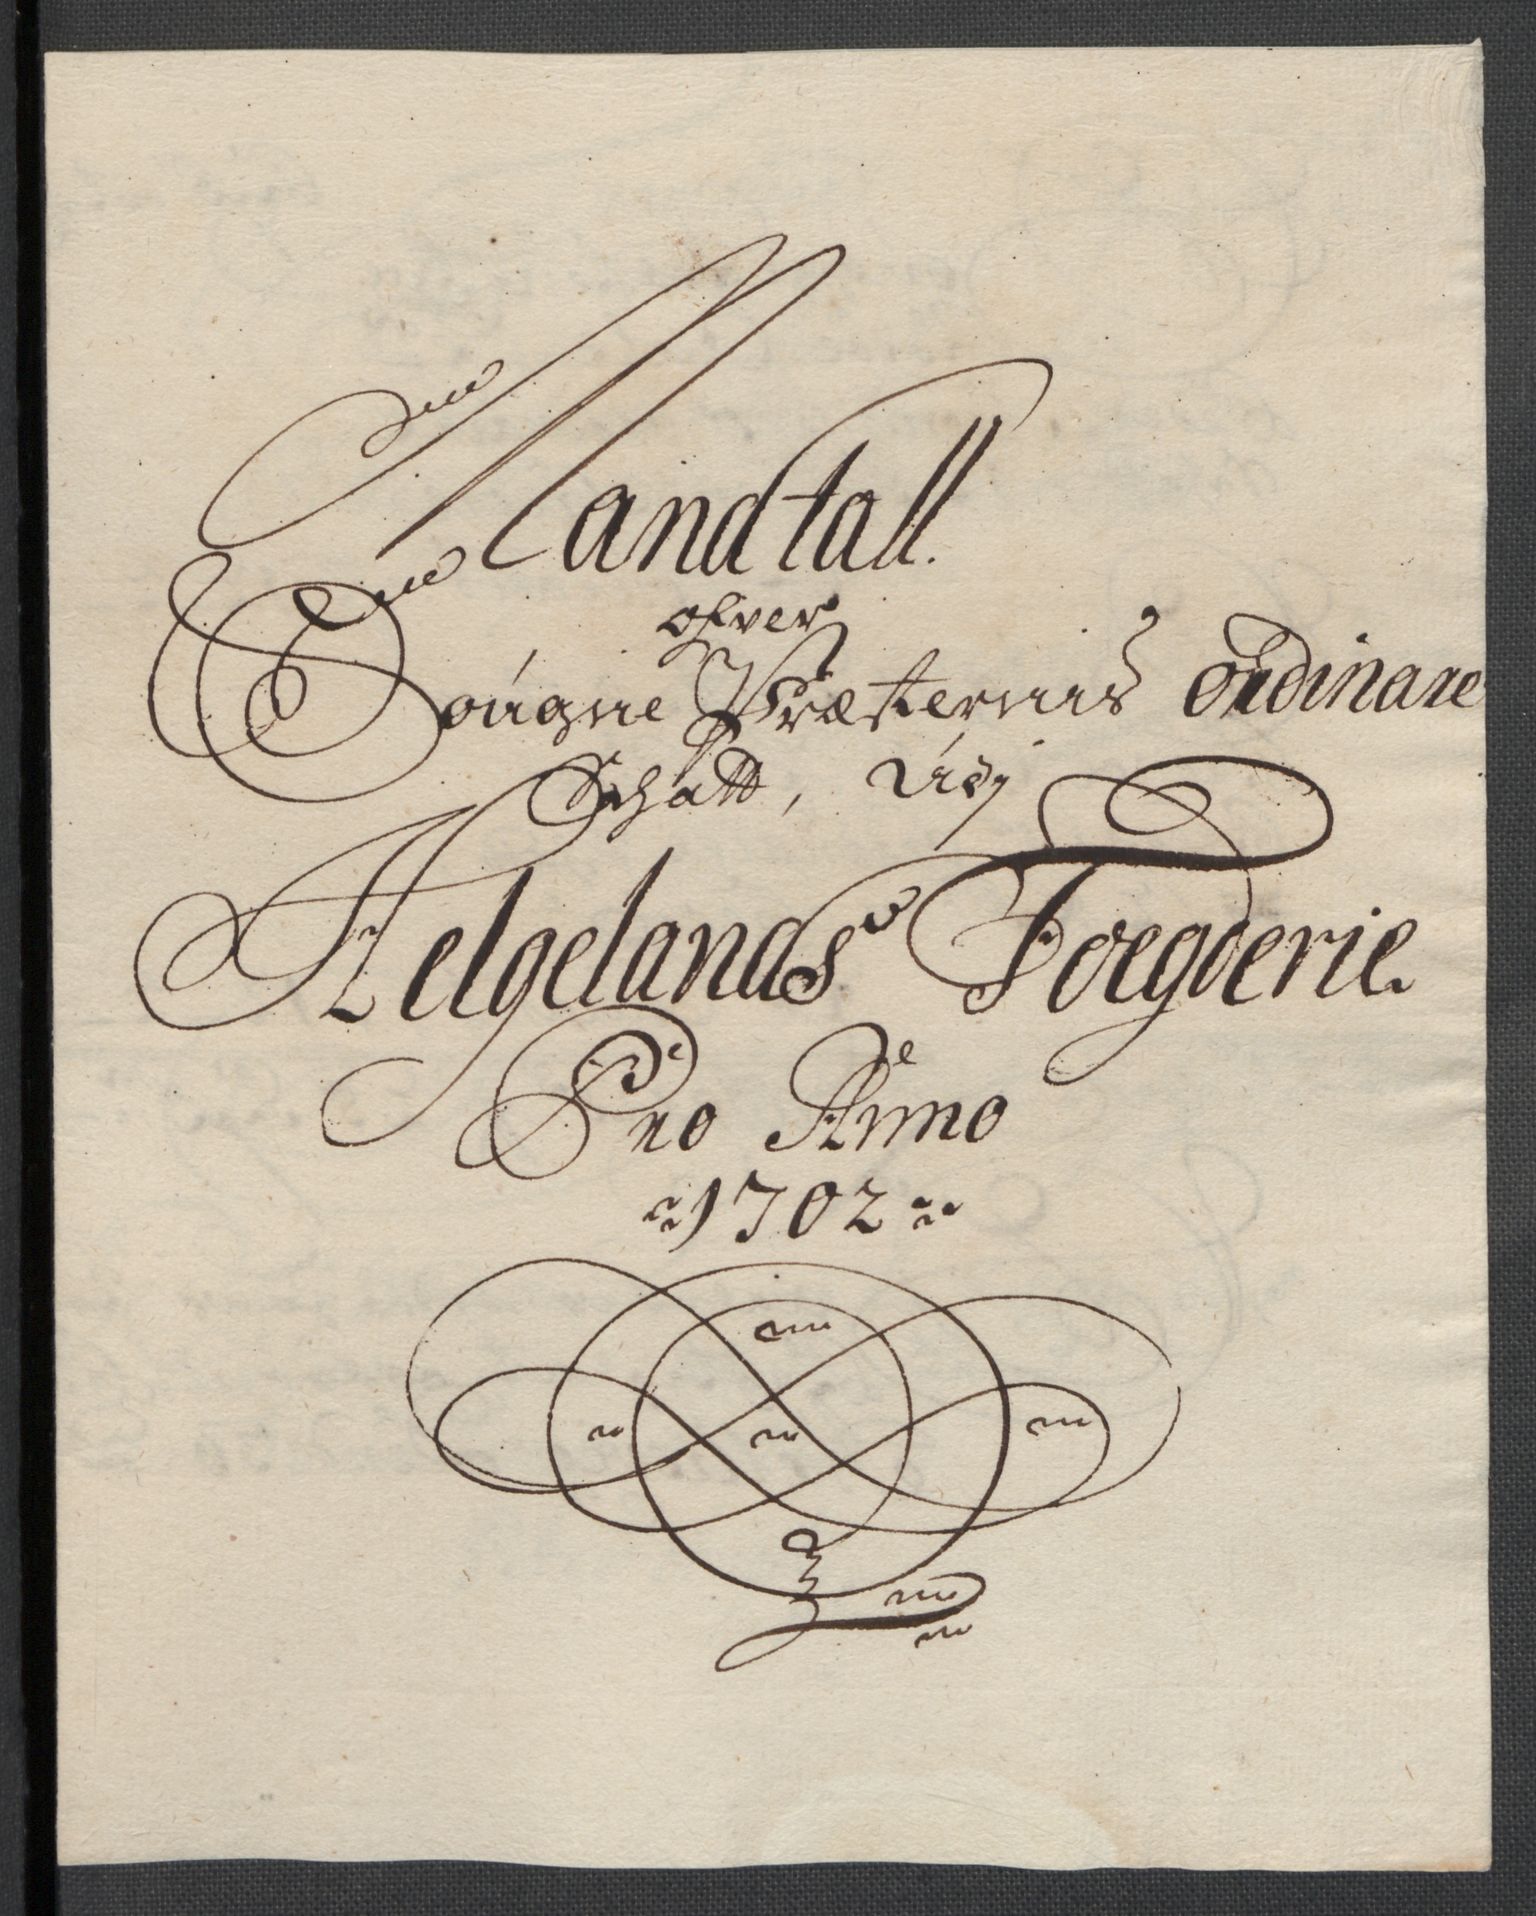 Mandtall.
ofver
Sougne Præsternis Ordinare
Schatt, udj
Helgelands Foegderie.
Pro Anno
1702